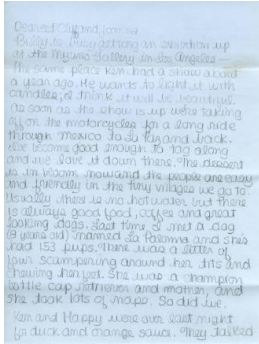 Dearest Clyf and Joan
Billy is busy putting an exhibition up
at the Mizuno Gallery in Los Angeles —
the same place Ken had a show about
a year ago. He wants to light it with
candles, I think it will be beautiful.
As soon as the show is up we're taking
off on the motorcycles for a long ride
through Mexico to La Paz and back.
good enough to tag along
and we love it down there. The desert
is in bloom now and the people are easy
and friendly in the tiny villages we go to.
Usually there is no hot water but there
is always good food, coffee and great
looking dogs. Last time I met a dog
(9 years old) named La Paloma and she's
had 153 pups. There was a litter of
four scampering around her tits and
chewing her feet. She was a champion
bottle cap retriever and mother, and
she took lots of naps. So did we.
Ken and Happy were over last night
for duck and orange sauce. They talked